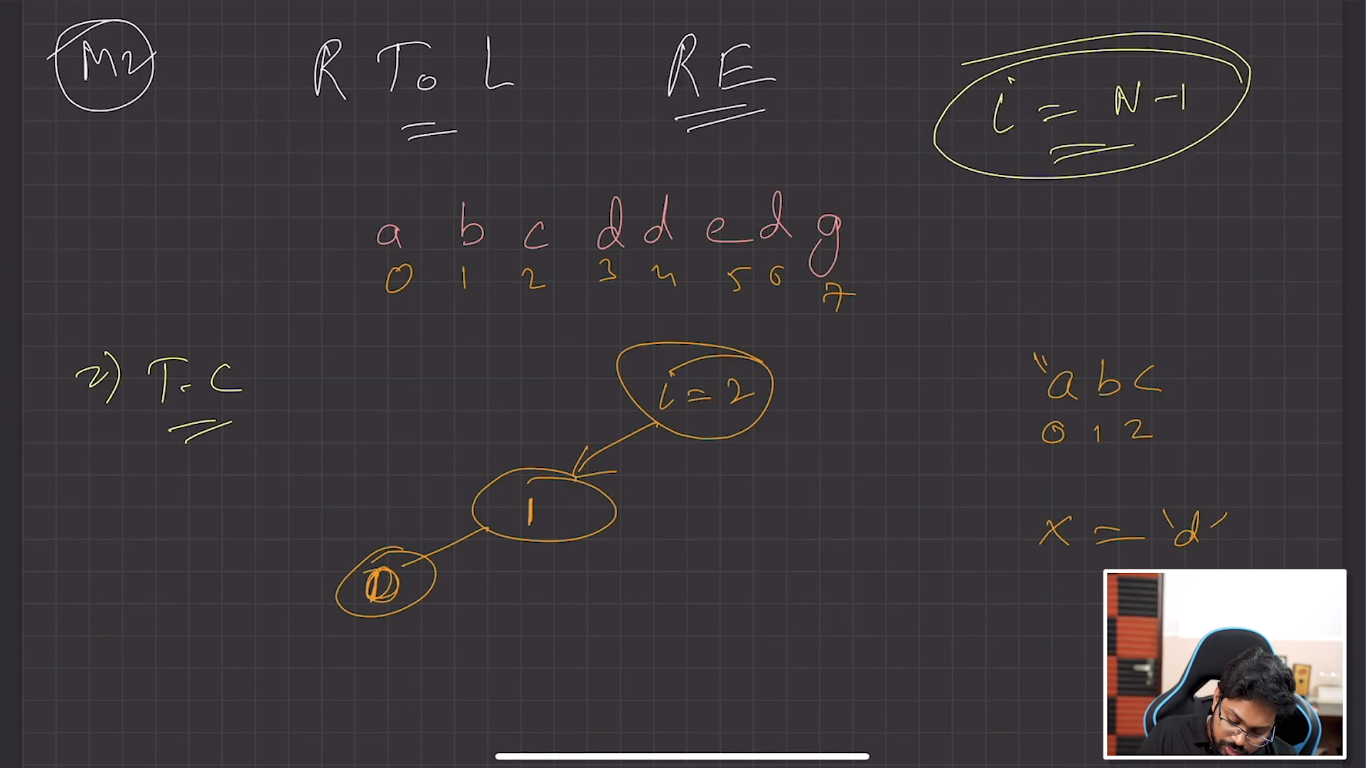 M2 R To L RE i = N-1
a b c d d e d g
0 1 2 3 4 5 6 7
2) T.C i = 2 "a b c
0 1 2
1 x = 'd'
0